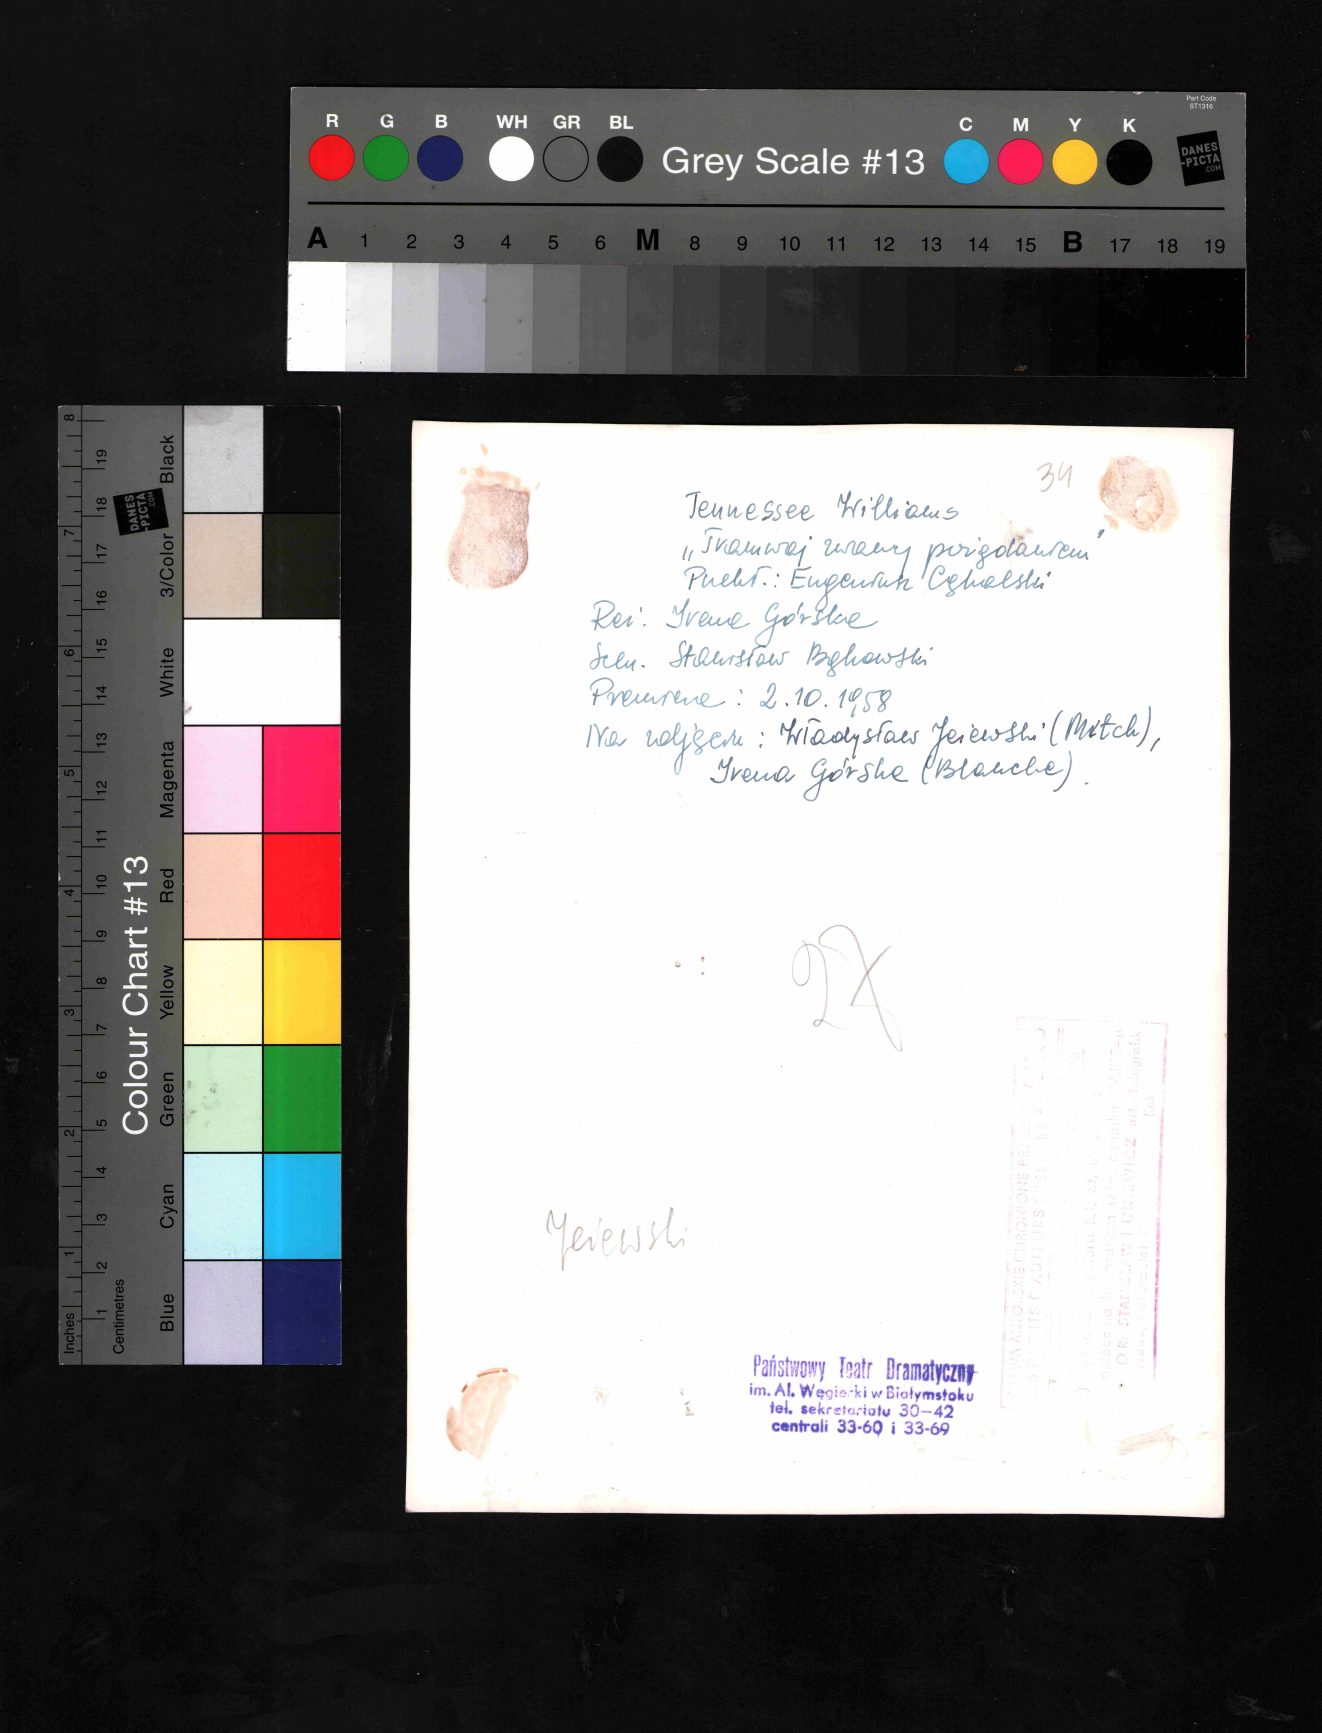 Part Code
ST1316
R G B WH GR BL Grey Scale #13 C M Y K
DANES
-PICTA
.COM
A 1 2 3 4 5 6 M 8 9 10 11 12 13 14 15 B 17 18 19
Colour Chart #13
Blue Cyan Green Yellow Red Magenta White 3/Color Black
DANES
-PICTA
.COM
Inches 1 2 3 4 5 6 7 8
Centimetres 1 2 3 4 5 6 7 8 9 10 11 12 13 14 15 16 17 18 19
34
Tennessee Williams
„Tramwaj zwany pożądaniem"
Przekł.: Eugeniusz Cękalski
Reż. Irena Górska
Scen. Stanisław Bąkowski
Premiera: 2.10.1958
Na zdjęciu: Władysław Jeżewski (Mitch),
Irena Górska (Blanche).
Jeżewski
Państwowy Teatr Dramatyczny
im. Al. Węgierki w Białymstoku
tel. sekretariatu 30-42
centrali 33-60 i 33-69